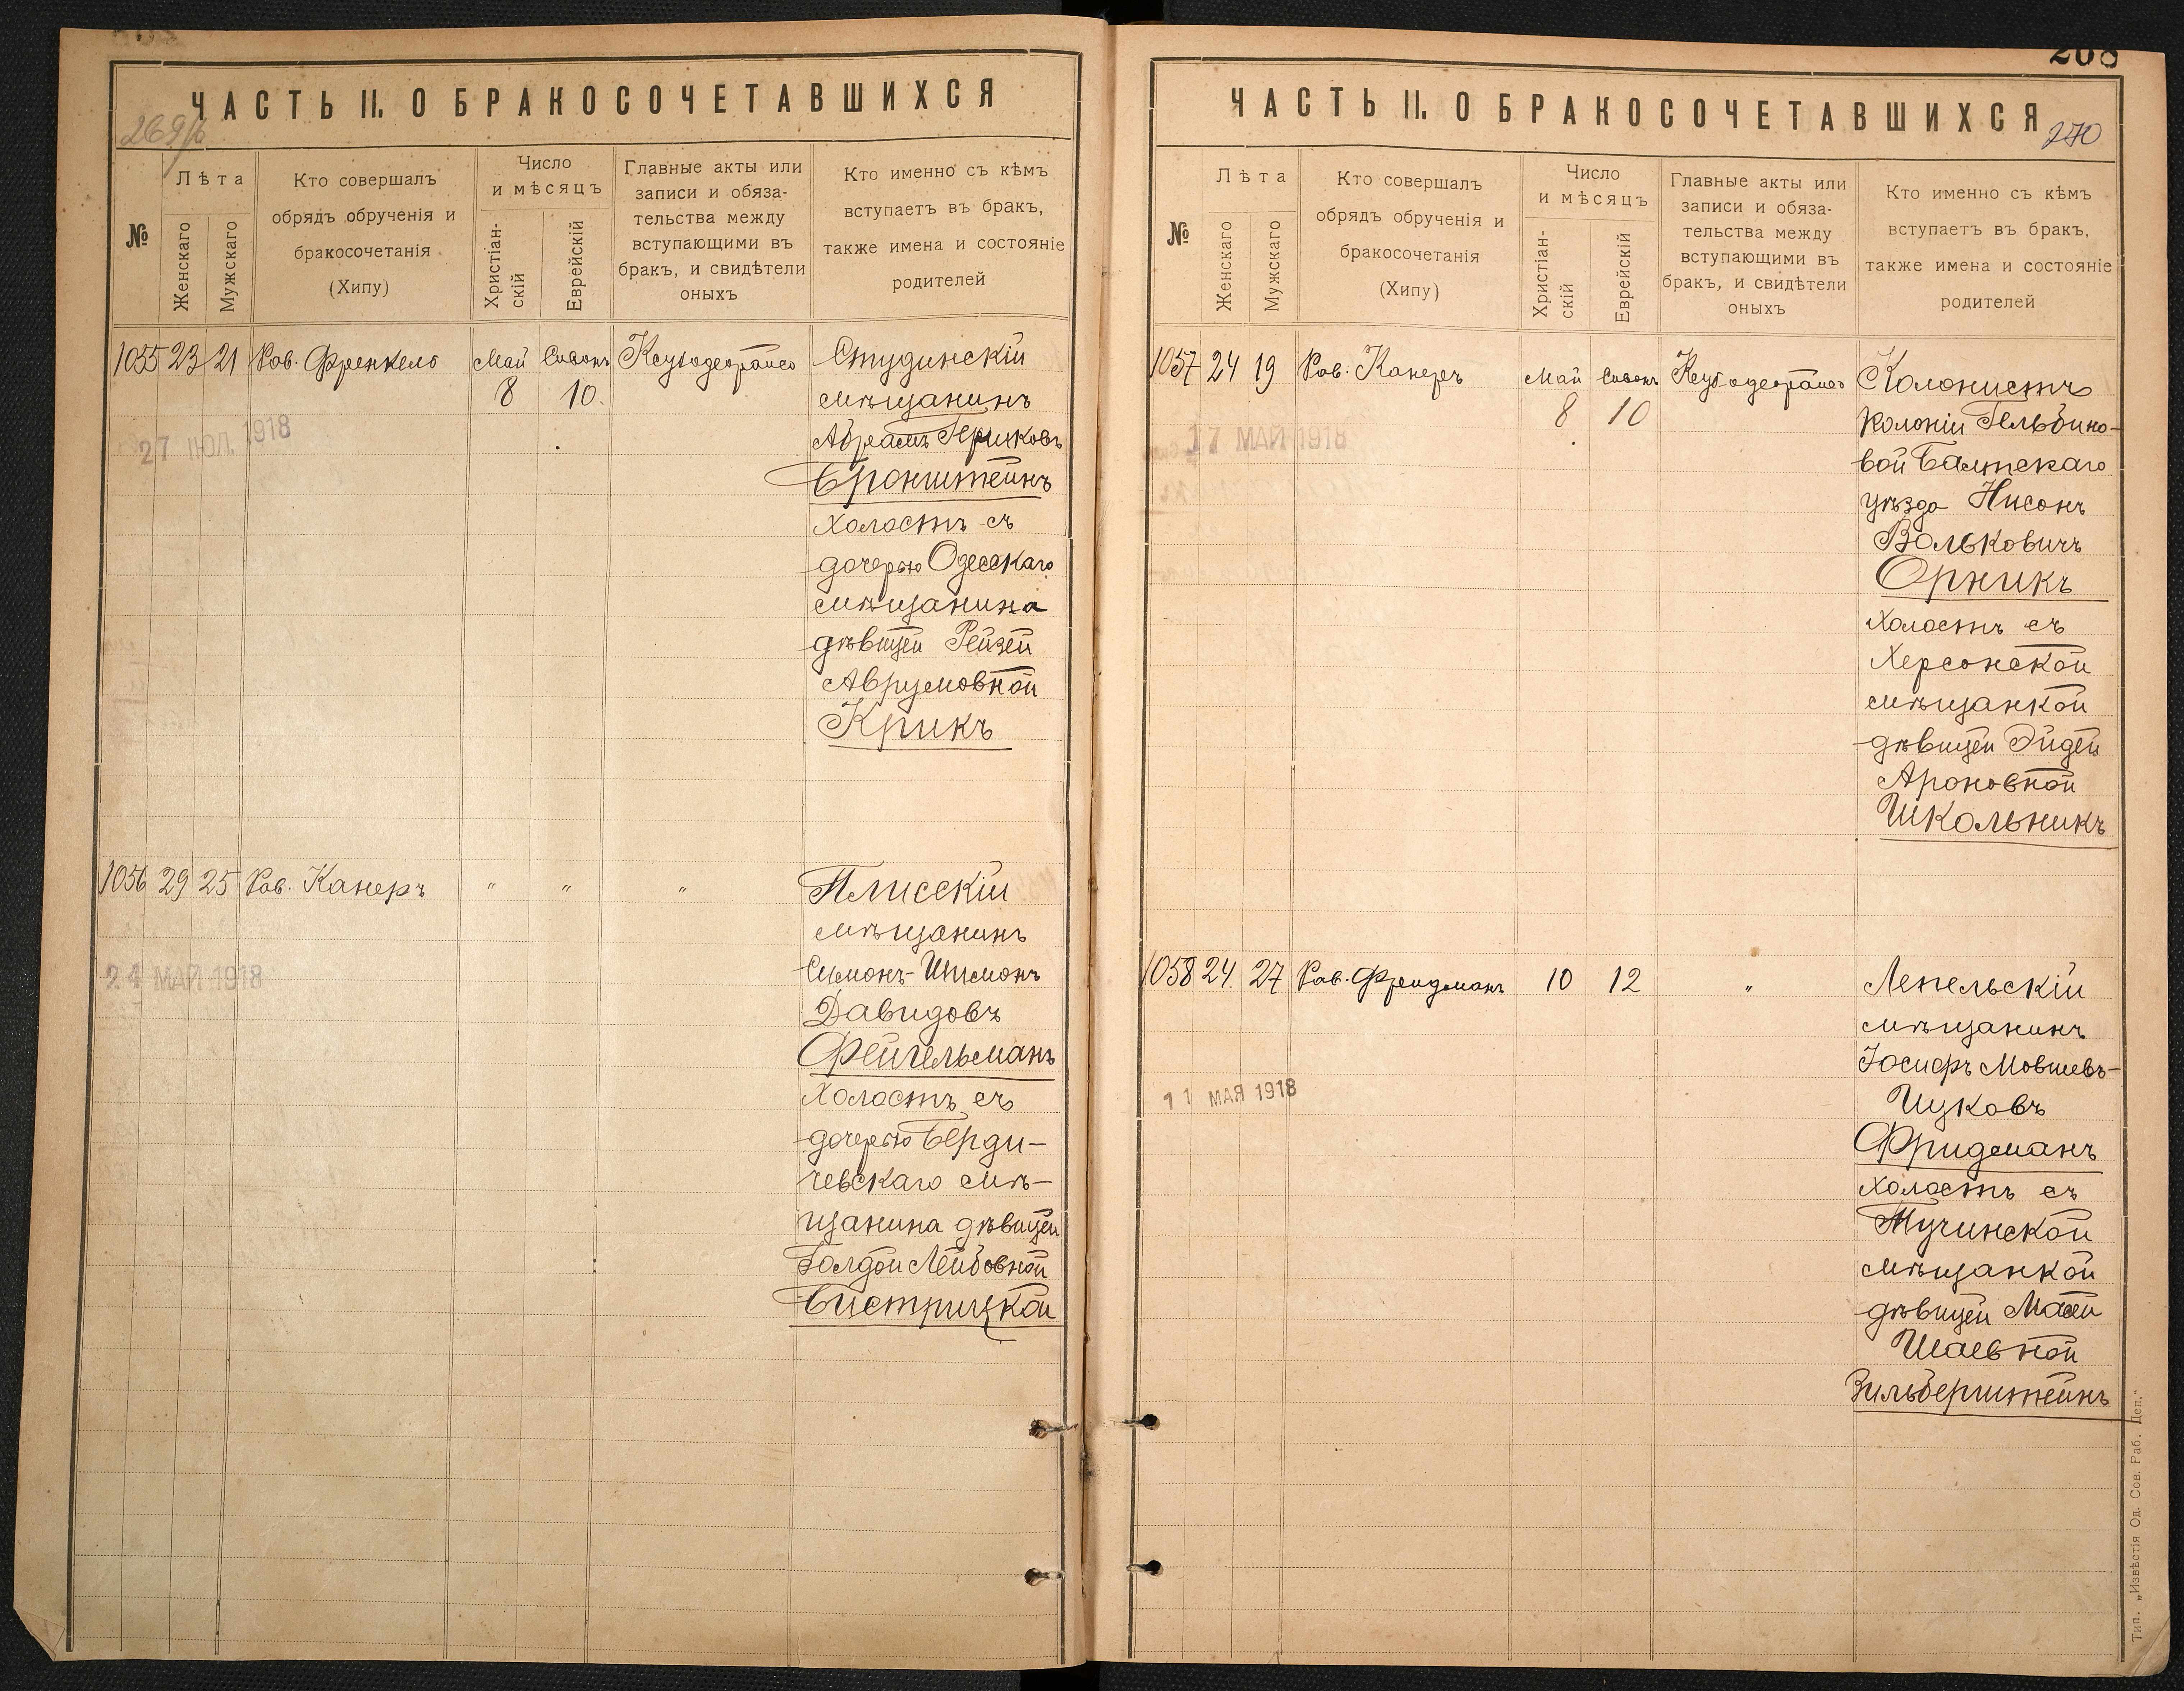 ЧАСТЬ II. О БРАКОСОЧЕТАВШИХСЯ
№
Лѣта
Женскаго
Мужскаго
Кто совершалъ
обрядъ обрученія и
бракосочетанія
(Хипу)
Число
и мѣсяцъ
Христіан-
скій
Еврейскій
Главные акты или
записи и обяза-
тельства между
вступающими въ
бракъ, и свидѣтели
оныхъ
Кто именно съ кѣмъ
вступаетъ въ бракъ,
также имена и состояніе
родителей
1055 23 21 Рав. Френкель Май Сивонъ
8 10
27 ІЮЛ. 1918
Студинскій
мѣщанинъ
Абрамъ Гершковъ
Бронштейнъ
холостъ съ
дочерью Одесскаго
мѣщанина
дѣвицей Рейзей
Аврумовной
Крикъ
1056 29 25 Рав. Канеръ " " "
24 МАЙ 1918
Плисскій
мѣщанинъ
Симонъ-Шимонъ
Давидовъ
Фейгельманъ
холостъ съ
дочерью Берди-
чевскаго мѣ-
щанина дѣвицей
Голдой Лейбовной
Бистрицкой
208
ЧАСТЬ II. О БРАКОСОЧЕТАВШИХСЯ
270
№
Лѣта
Женскаго
Мужскаго
Кто совершалъ
обрядъ обрученія и
бракосочетанія
(Хипу)
Число
и мѣсяцъ
Христіан-
скій
Еврейскій
Главные акты или
записи и обяза-
тельства между
вступающими въ
бракъ, и свидѣтели
оныхъ
Кто именно съ кѣмъ
вступаетъ въ бракъ,
также имена и состояніе
родителей
1057 24 19 Рав. Канеръ Май Сивонъ
8 10
17 МАЙ 1918
Колонистъ
колоніи Гельбино-
вой Балтскаго
уѣзда Нисонъ
Вольковичъ
Орникъ
холостъ съ
Херсонской
мѣщанкой
дѣвицей Эйдей
Ароновной
Школьникъ
1058 24 27 Рав. Фридманъ 10 12 "
11 МАЯ 1918
Лепельскій
мѣщанинъ
Іосифъ Мовшевъ-
Ицковъ
Фридманъ
холостъ съ
Тучинской
мѣщанкой
дѣвицей Масей
Шаевной
Зильберштейнъ
Тип. „Извѣстія Од. Сов. Раб. Деп."